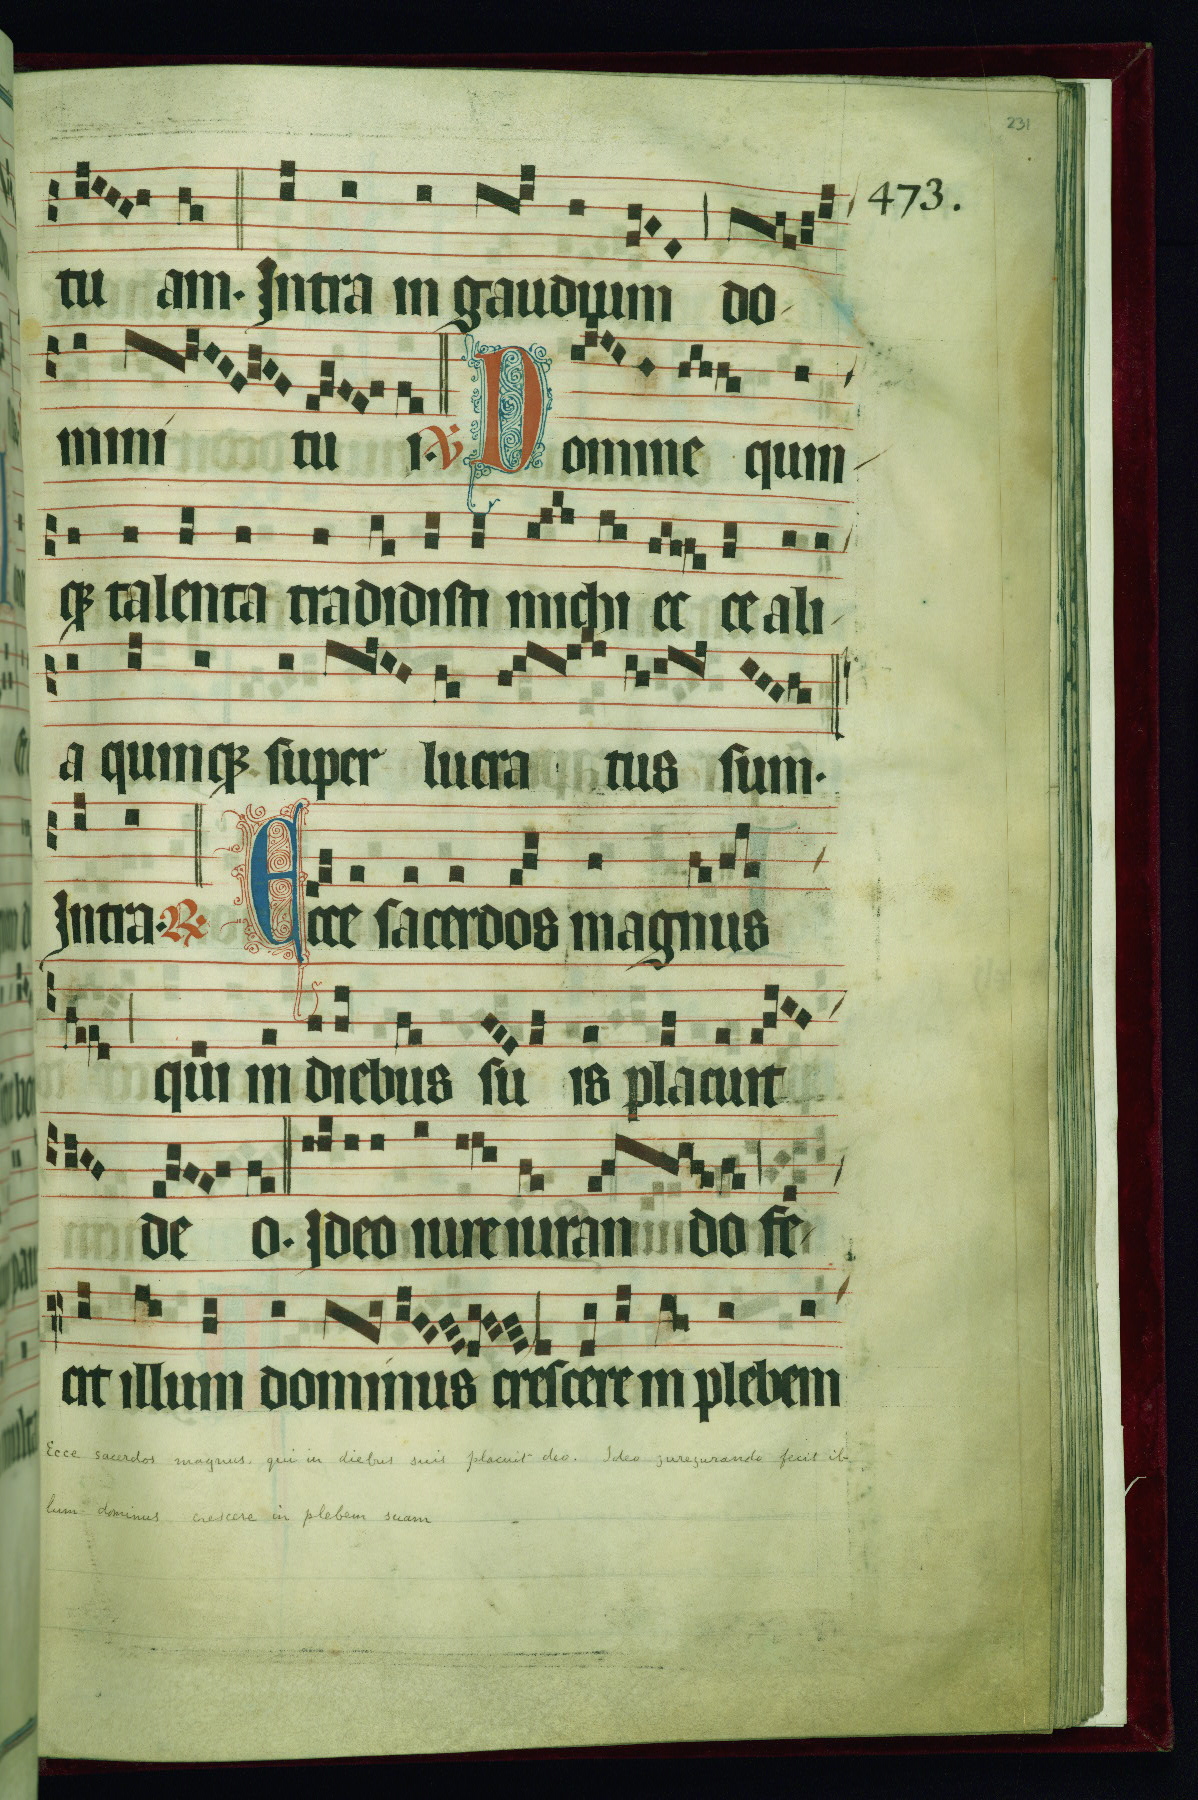 231
473.
tu am. Intra in gaudium do
mini tu i. V Domine quin
q talenta tradidisti michi ec ce ali
a quinq super lucra tus sum.
Intra. R Ecce sacerdos magnus
qui in diebus su is placuit
de o. Ideo iureiuran do fe
cit illum dominus crescere in plebem
Ecce sacerdos magnus. qui in diebus suis placuit deo. Ideo jurejurando fecit il-
lum dominus crescere in plebem suam